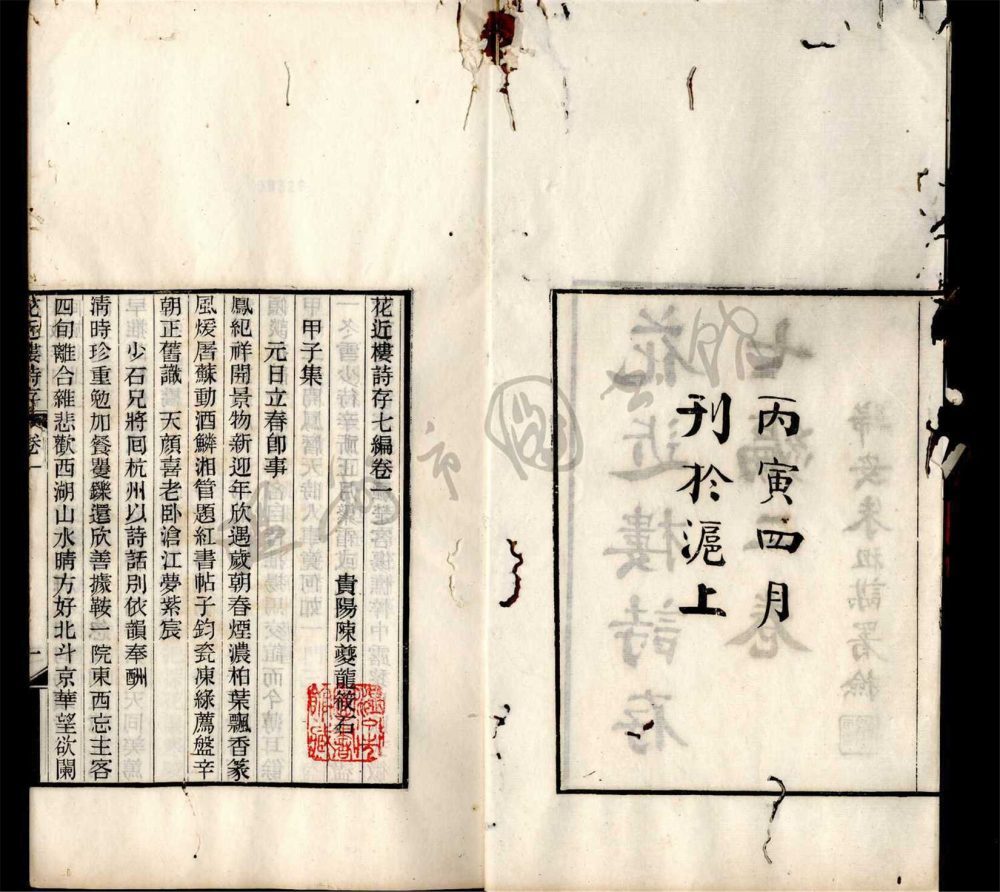 丙寅四月
刊於滬上
花近樓詩存七編卷一
貴陽陳夔龍筱石
甲子集
元日立春卽事
鳳紀祥開景物新迎年欣遇歲朝春煙濃柏葉飄香篆
風煖屠蘇動酒鱗湘管題紅書帖子鈞瓷凍綠薦盤辛
朝正舊識　天顏喜老卧滄江夢紫宸
少石兄將回杭州以詩話別依韻奉酬
淸時珍重勉加餐矍鑠還欣善據鞍一院東西忘主客
四旬離合雜悲歡西湖山水晴方好北斗京華望欲闌
花近樓詩存　卷一　一